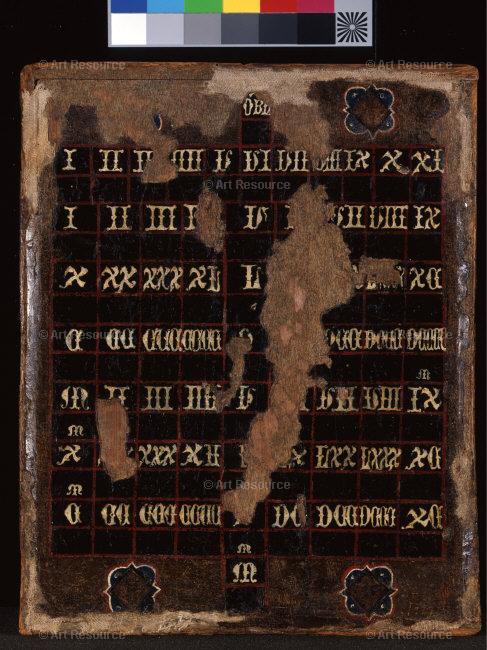 © Art Resource © Art Resource
OBL
I II IIII V VI VII VIII IX X XI
© Art Resource
I II III V VII VIII IX
X XX XXX XL L XC
© Art Resource
C CC CCC CCCC DCC DCCC DCCCC
M
M II III IIII VII VIII IX
M
X XXX XL X LXX LXXX XC
© Art Resource
M
C CC CCC CCCC DC DCC DCCC XC
M
M
© Art Resource © Art Resource